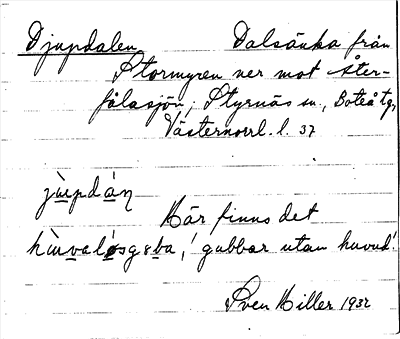 Djupdalen Dalsänka från
Stormyren ner mot Åter-
fålasjön, Styrnäs sn., Boteå tg,
Västernorrl. l. 37
Här finns det
gubbar utan huvud!
Sven Hiller 1932